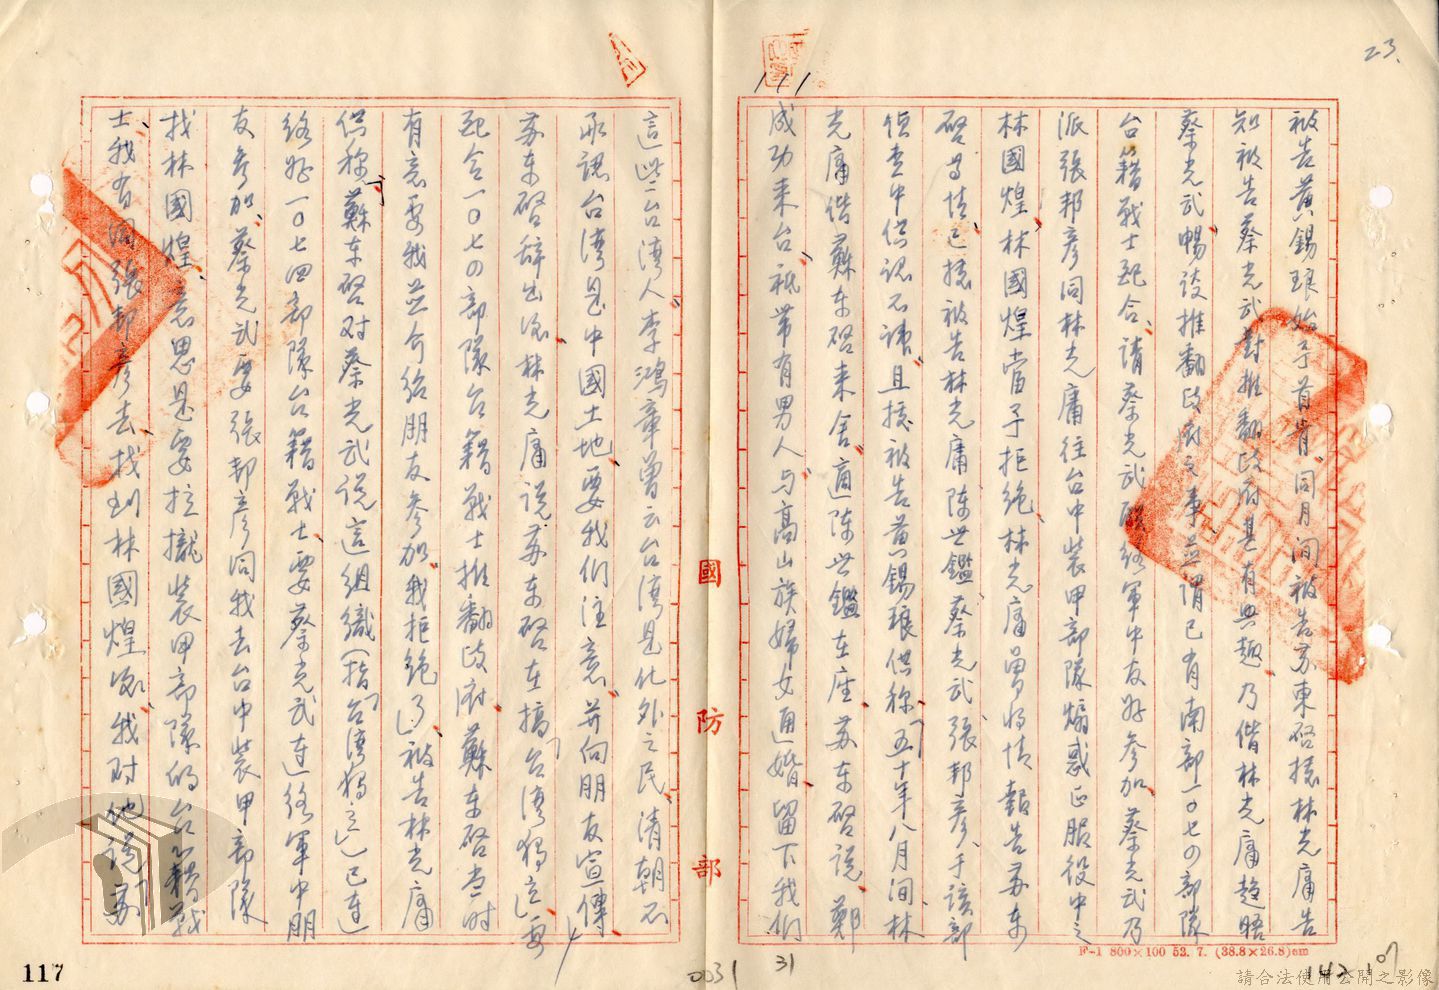 23.
被告黃錫琅始予首肯、同月間被告蘇東啓據林光庸告
知被告蔡光武對推翻政府甚有興趣、乃偕林光庸趨晤
蔡光武暢談推翻政府之事並謂已有南部一〇七四部隊
台籍戰士配合、請蔡光武聯絡軍中友好參加、蔡光武乃
派張邦彥同林光庸往台中裝甲部隊煽惑正服役中之
林國煌、林國煌當予拒絕、林光庸曾將情報告蘇東
啓等情、已據被告林光庸陳世鑑蔡光武張邦彥、于該部
偵查中供認不諱、且據被告黃錫琅供稱「五十年八月間、林
光庸偕蘇東啓來舍、適陳世鑑在座、苏东啓說、鄭
成功来台、祇带有男人、与高山族婦女通婚、留下我们
這些台湾人、李鴻章曾云台湾是化外之民、清朝不
承認台湾是中國土地、要我们注意、并向朋友宣傳
苏东啓辞出後、林光庸說苏东啓在搞「台湾独立」要
配合一〇七四部隊台籍戰士推翻政府、蘇东啓当时
有意要我並介紹朋友參加、我拒絕了」被告林光庸
供稱「蘇东啓对蔡光武說這組織(指「台湾独立」)已連
絡好一〇七四部隊台籍戰士、要蔡光武連絡軍中朋
友參加、蔡光武要張邦彥同我去台中裝甲部隊
找林國煌、意思是要拉攏裝甲部隊的台籍戰
士、我有同張邦彥去、找到林國煌後、我对他說「苏
國防部
F-1 800×100 52. 7. (38.8×26.8)cm
117
0031
31
142
107
請合法使用公開之影像